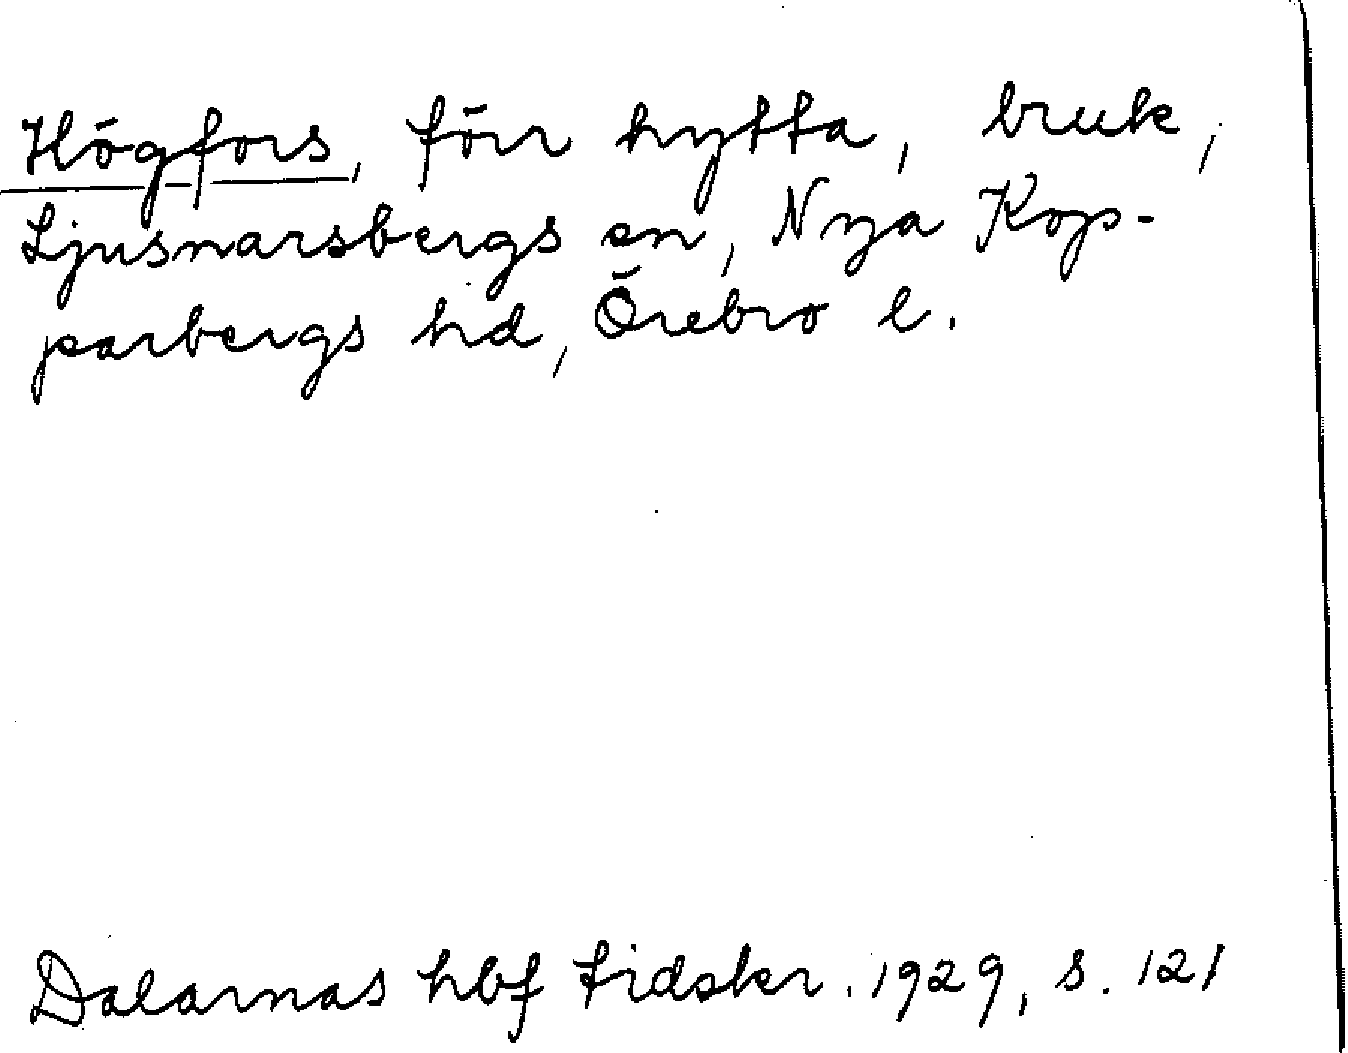 Högfors, förr hytta, bruk,
Ljusnarsbergs sn, Nya Kop-
parbergs hd, Örebro l.
Dalarnas hbf tidskr. 1929, s. 121